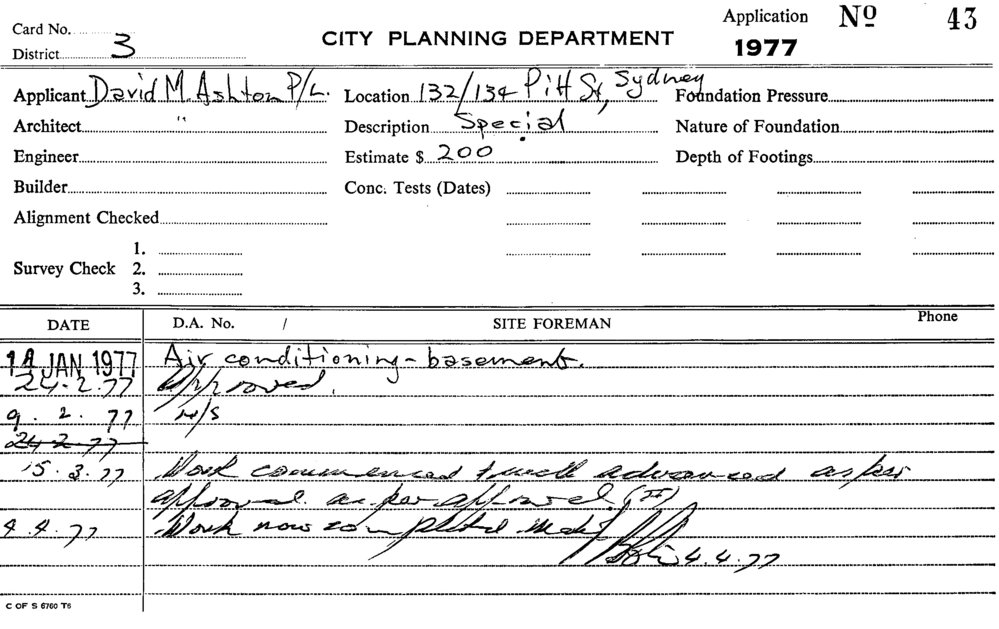 Card No.
Application Nº 43
District 3
CITY PLANNING DEPARTMENT
1977
Applicant David M. Ashton P/L. Location 132/134 Pitt St, Sydney Foundation Pressure
Architect " Description Special Nature of Foundation
Engineer Estimate $ 200 Depth of Footings
Builder Conc. Tests (Dates)
Alignment Checked
1.
Survey Check 2.
3.
DATE D.A. No. / SITE FOREMAN Phone
JAN 1977 Air conditioning - basement.
24.2.77 Approved.
9.2.77 N/S
24-2-77
15.3.77 Work commenced & well advanced as per
approval. as per approval.
4.4.77 Work now completed
4.4.77
C OF S 6760 T6